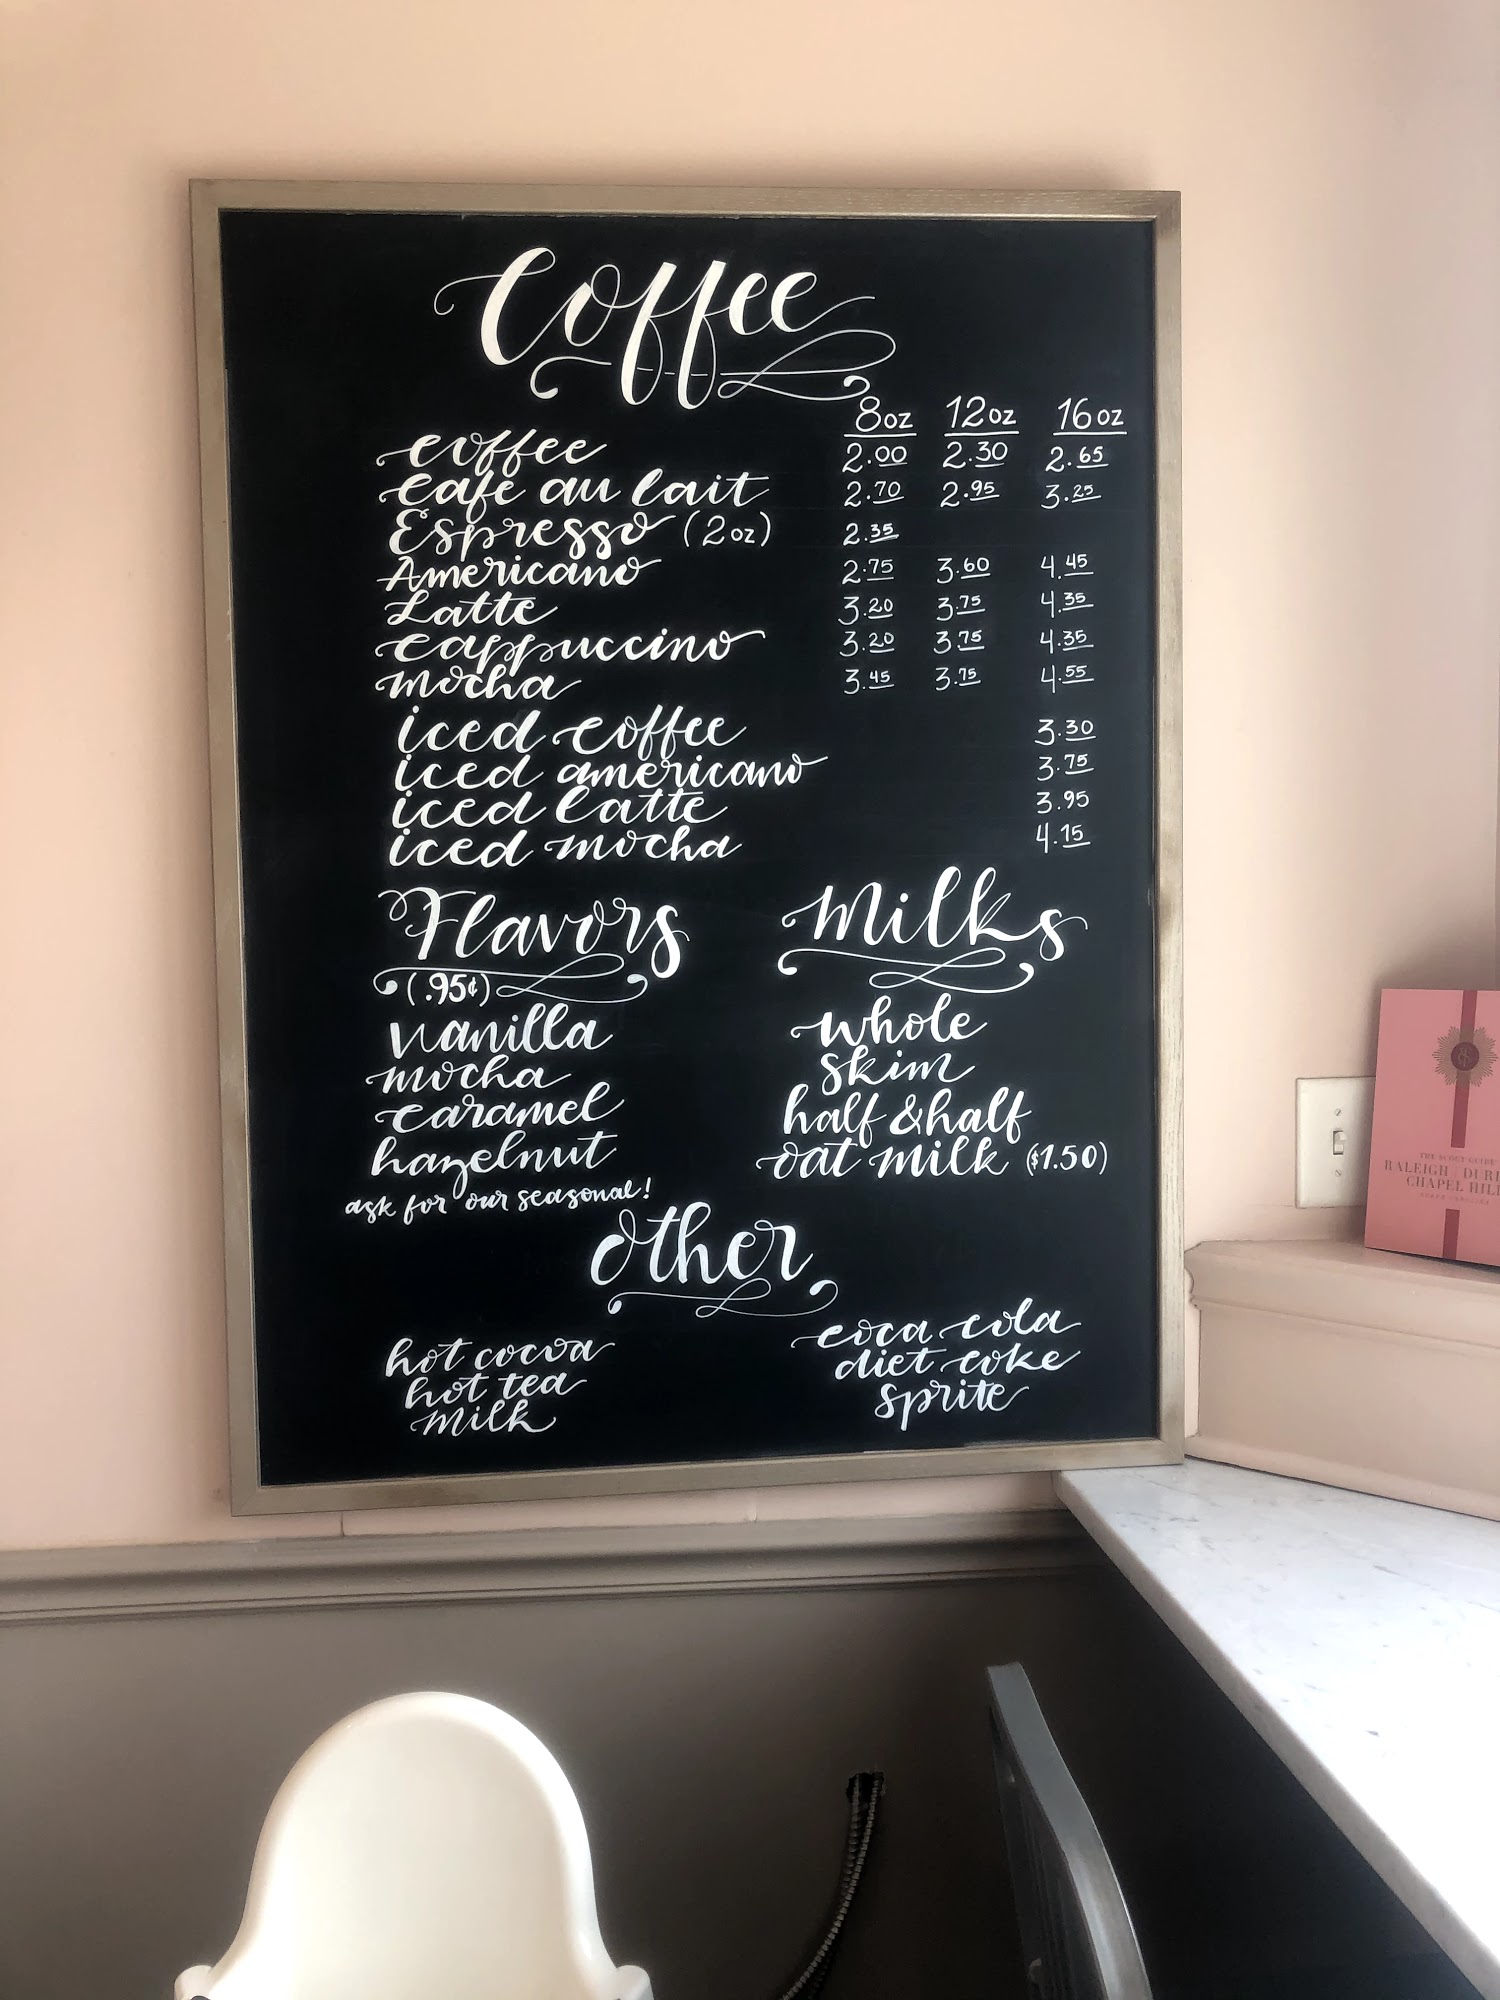 Coffee
8oz 12oz 16oz
coffee 2.00 2.30 2.65
Cafe au lait 2.70 2.95 3.25
Espresso (2oz) 2.35
Americano 2.75 3.60 4.45
Latte 3.20 3.75 4.35
cappuccino 3.20 3.75 4.35
mocha 3.45 3.75 4.55
iced coffee 3.30
iced americano 3.75
iced latte 3.95
iced mocha 4.15
Flavors
(.95¢)
vanilla
mocha
caramel
hazelnut
ask for our seasonal!
Milks
whole
skim
half & half
oat milk ($1.50)
other
hot cocoa
hot tea
milk
coca cola
diet coke
sprite
THE SCOUT GUIDE
RALEIGH | DURH
CHAPEL HILL